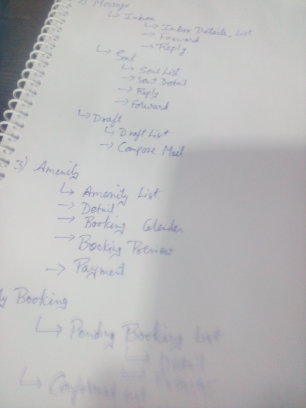 Message
↳ Inbox
↳ Inbox Details, List
→ Forward
→ Reply
↳ Sent
↳ Sent List
→ Sent Detail
→ Reply
→ Forward
↳ Draft
↳ Draft List
→ Compose Mail
3) Amenity
↳ Amenity List
→ Detail
→ Booking Calender
→ Booking Preview
→ Payment
Booking
↳ Pending Booking List
↳ Detail